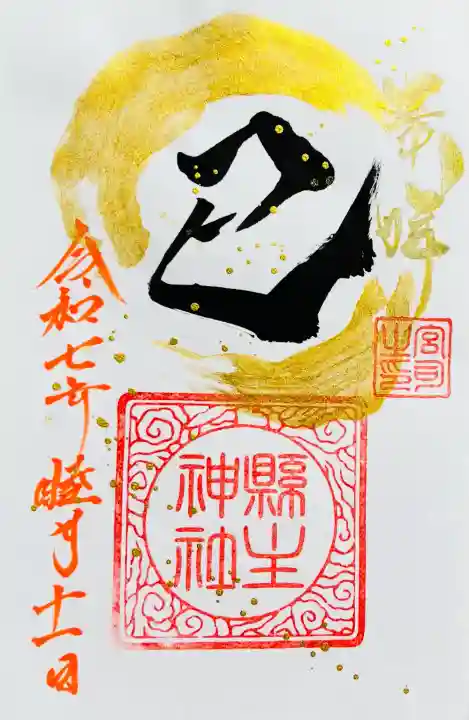 巳
宮司
之印
縣主
神社
令和七年 睦月十一日